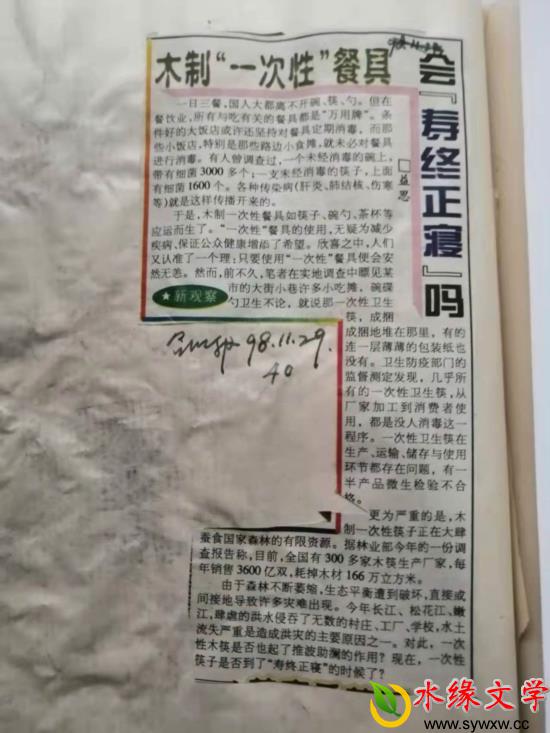 木制“一次性”餐具
会『寿终正寝』吗
□益思
一日三餐，国人大都离不开碗、筷、勺。但在
餐饮业，所有与吃有关的餐具都是“万用牌”。条
件好的大饭店或许还坚持对餐具定期消毒，而那
些小饭店，特别是那些路边小食摊，就未必对餐具
进行消毒。有人曾调查过，一个未经消毒的碗上，
带有细菌3000多个；一支未经消毒的筷子，上面
有细菌1600个。各种传染病(肝炎、肺结核、伤寒
等)就是这样传播开来的。
于是，木制一次性餐具如筷子、碗勺、茶杯等
应运而生了。“一次性”餐具的使用，无疑为减少
疾病、保证公众健康增添了希望。欣喜之中，人们
又认准了一个理；只要使用“一次性”餐具便会安
然无恙。然而，前不久，笔者在实地调查中瞟见某
市的大街小巷许多小吃摊，碗碟
勺卫生不论，就说那一次性卫生
筷，成捆
成捆地堆在那里，有的
连一层薄薄的包装纸也
没有。卫生防疫部门的
监督测定发现，几乎所
有的一次性卫生筷，从
厂家加工到消费者使
用，都是没人消毒这一
程序。一次性卫生筷在
生产、运输、储存与使用
环节都存在问题，有一
半产品微生检验不合
格。
更为严重的是，木
制一次性筷子正在大肆
蚕食国家森林的有限资源。据林业部今年的一份调
查报告称，目前，全国有300多家木筷生产厂家，每
年销售3600亿双，耗掉木材166万立方米。
由于森林不断萎缩，生态平衡遭到破坏，直接或
间接地导致许多灾难出现。今年长江、松花江、嫩
江，肆虐的洪水侵吞了无数的村庄、工厂、学校，水土
流失严重是造成洪灾的主要原因之一。对此，一次
性木筷是否也起了推波助澜的作用？现在，一次性
筷子是否到了“寿终正寝”的时候了？
★新观察
98.11.29.
40
水缘文学
www.sywxw.com